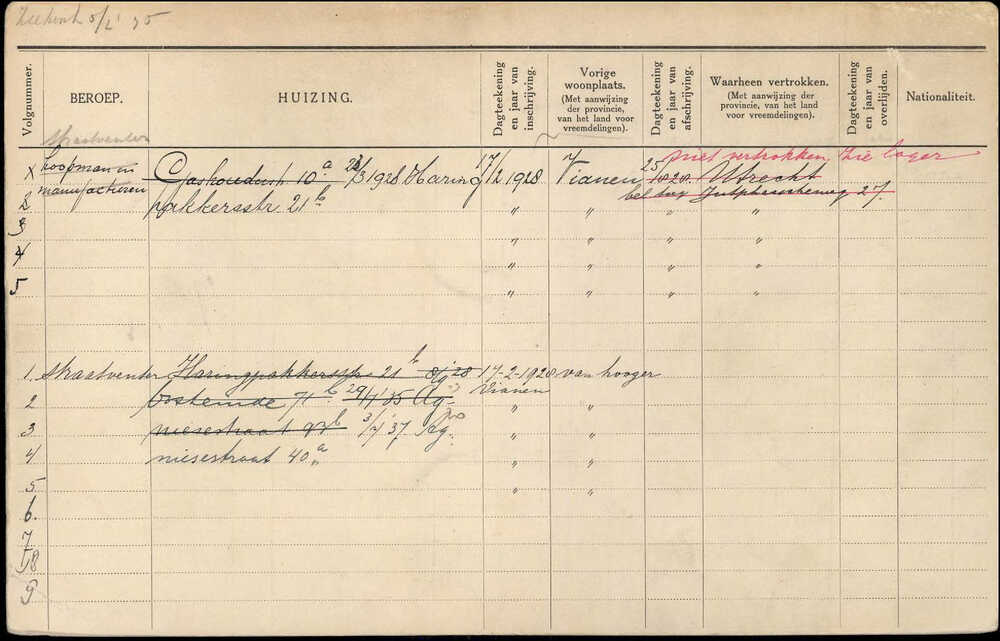 5/2 '35
Volgnummer.
BEROEP.
HUIZING.
Dagteekening en jaar van inschrijving.
Vorige woonplaats.
(Met aanwijzing der provincie, van het land voor vreemdelingen).
Dagteekening en jaar van afschrijving.
Waarheen vertrokken.
(Met aanwijzing der provincie, van het land voor vreemdelingen).
Dagteekening en jaar van overlijden.
Nationaliteit.
straatventer
niet vertrokken, zie lager
koopman in Gashouderstr 10a 1928 Haring 17/2 1928 Vianen 25 Utrecht
manufacturen
2 pakkersstr. 21b " " " Jutphascheweg 27.
3 " " " "
4 " " " "
5 " " " "
1. straatventer Haringpakkersstr 21b 28 17-2-1928 van hooger
Vianen
2 oosteinde 71b 29/1 '35 Ag. " "
3 niesestraat 3/7 '37. Ag. " "
4 niesestraat 40a " "
5 " "
6.
7
8
9